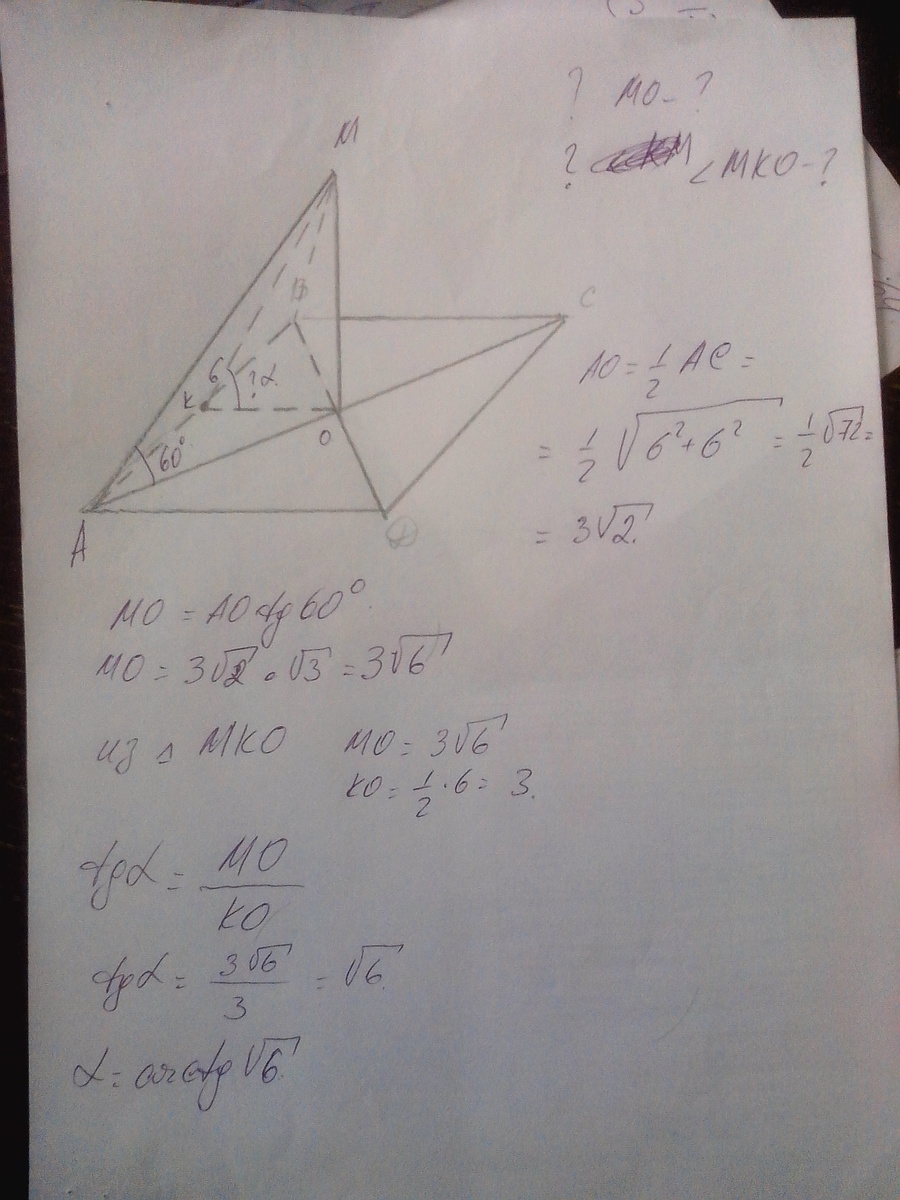 ? MO - ?
? ∠MKO - ?
M
B
C
6
K
? α
60°
O
A
D
AO = 1/2 AC =
= 1/2 √(6² + 6²) = 1/2 √72 =
= 3√2.
MO = AO tg 60°.
MO = 3√2 · √3 = 3√6
из △ MKO MO = 3√6
KO = 1/2 · 6 = 3.
tgα = MO/KO
tgα = 3√6/3 = √6.
α = arctg √6